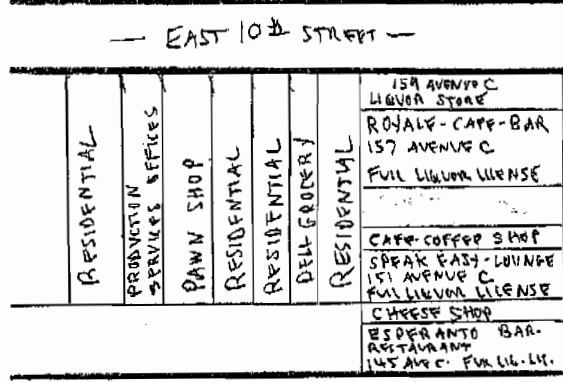 — EAST 10th STREET —
RESIDENTIAL
PRODUCTION
SERVICES OFFICES
PAWN SHOP
RESIDENTIAL
RESIDENTIAL
DELI-GROCERY
RESIDENTIAL
159 AVENUE C
LIQUOR STORE
ROYALE-CAFE-BAR
157 AVENUE C
FULL LIQUOR LICENSE
CAFE-COFFEE SHOP
SPEAK EASY-LOUNGE
151 AVENUE C
FULL LIQUOR LICENSE
CHEESE SHOP
ESPERANTO BAR-
RESTAURANT
145 AVE C. FUL LIQ. LIC.